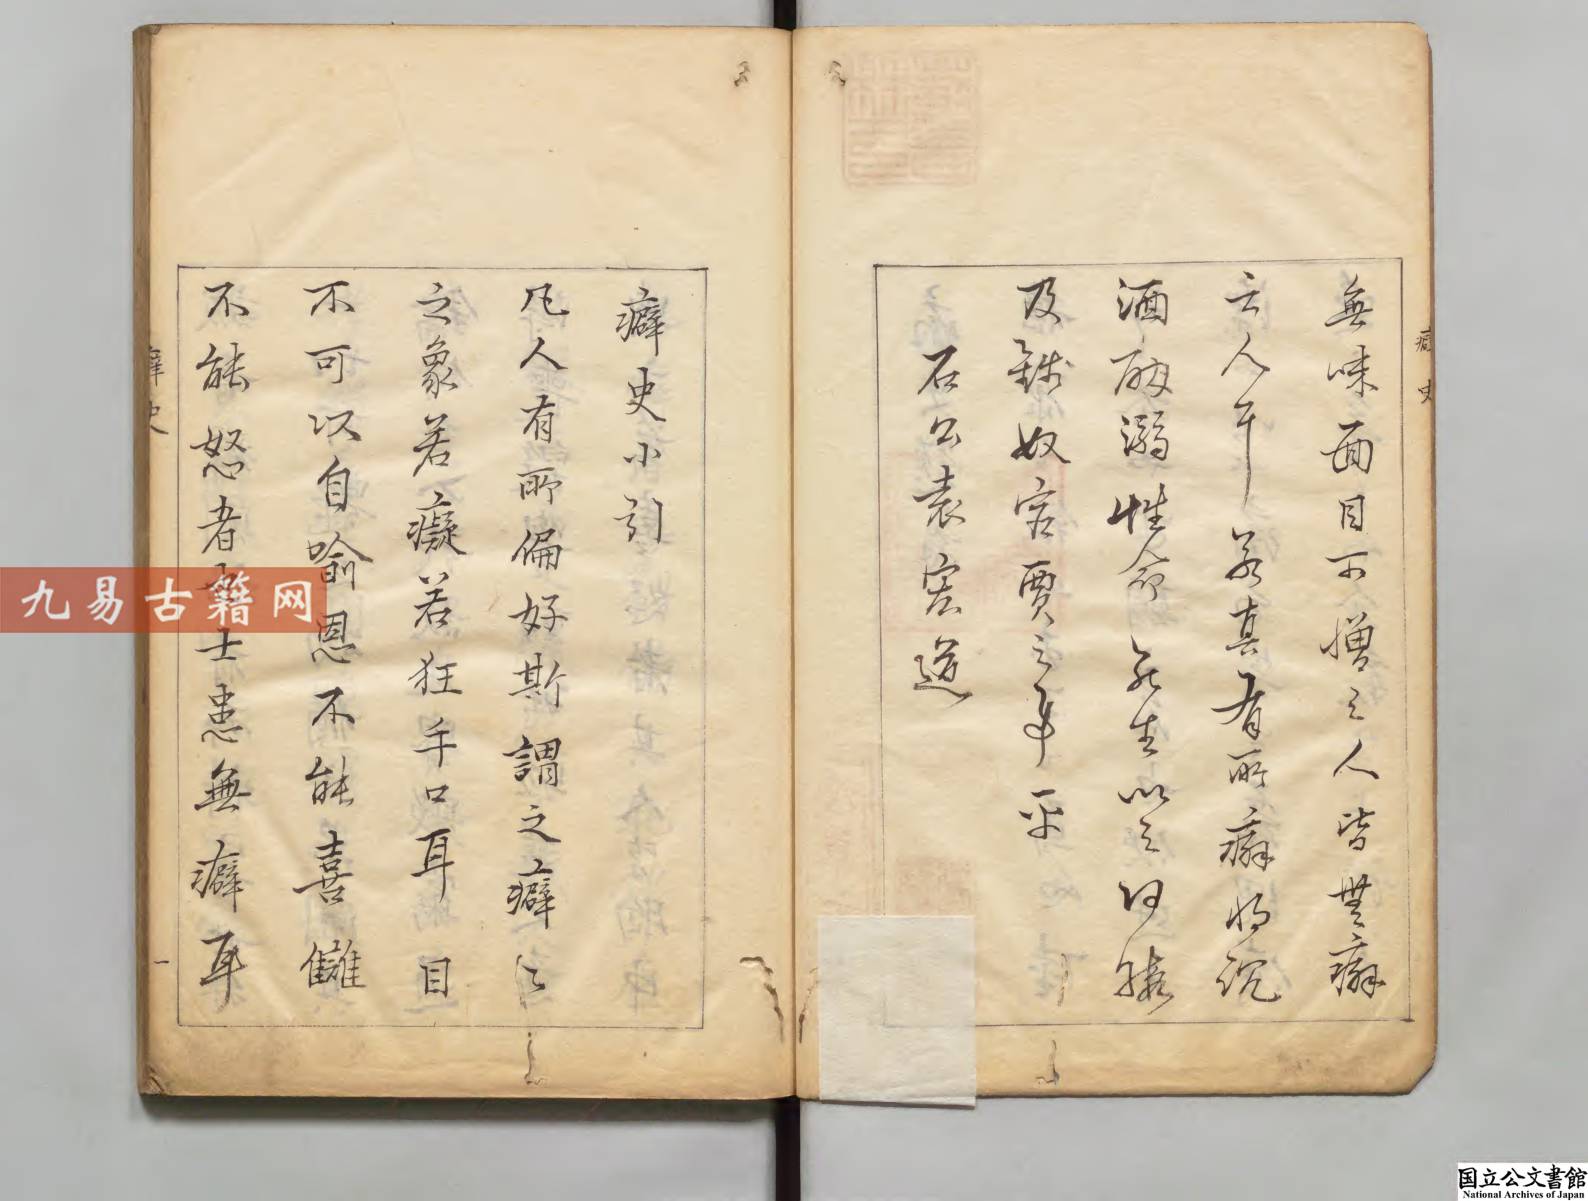 無味面目可憎之人皆無癖
之人耳若真有所癖將沉
酒酣溺性命死生以之何暇
及錢奴宦賈之事乎
石公袁宏道
癖史
癖史小引
凡人有所偏好斯謂之癖癖
之象若癡若狂手口耳目
不可以自喻恩不能喜讎
不能怒者士患無癖耳
癖史
一
九易古籍网
国立公文書館
National Archives of Japan